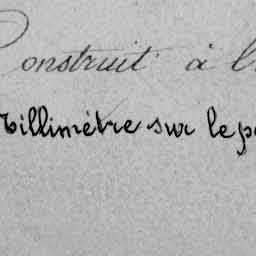 Construit à l'
Millimètre sur le p